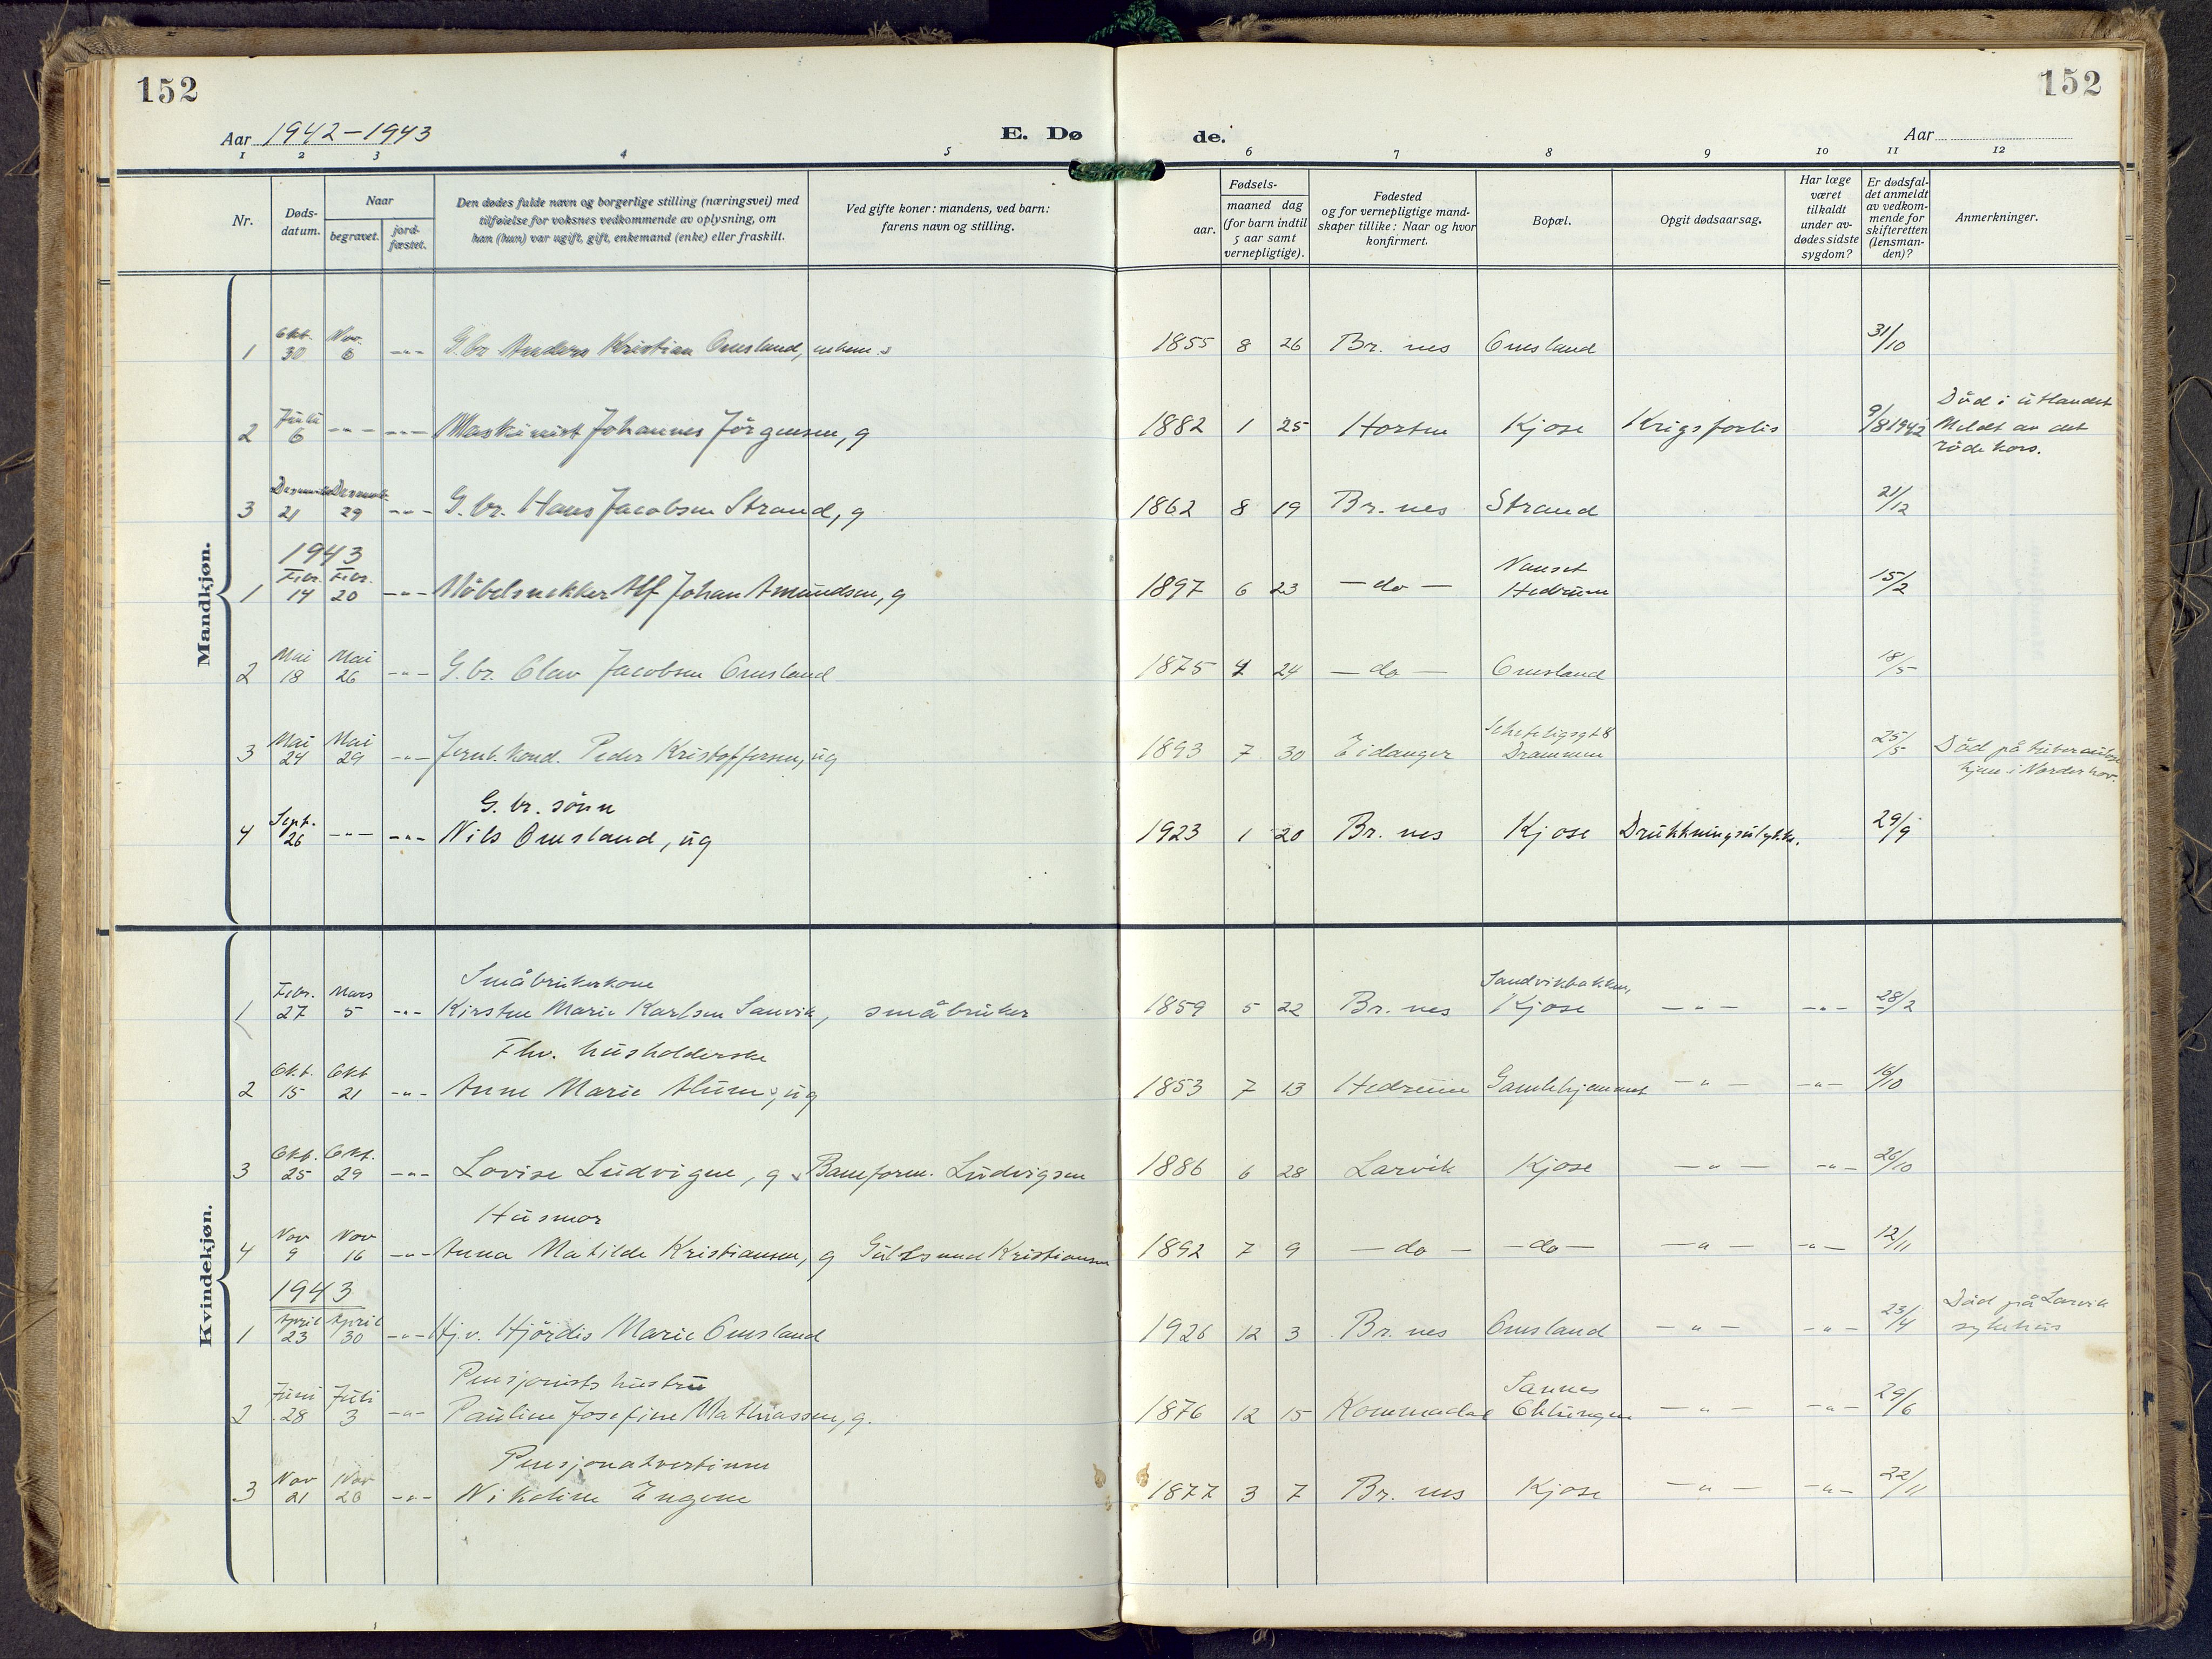 152
152
Aar 1942-1943
E. Dø
de.
Aar
1 2 3 4 5 6 7 8 9 10 11 12
Nr.
Døds-
datum.
Naar
begravet.
jord-
fæstet.
Den dødes fulde navn og borgerlige stilling (næringsvei) med
tilføielse for voksnes vedkommende av oplysning, om
han (hun) var ugift, gift, enkemand (enke) eller fraskilt.
Ved gifte koner: mandens, ved barn:
farens navn og stilling.
Fødsels-
aar.
maaned dag
(for barn indtil
5 aar samt
vernepligtige).
Fødested
og for vernepligtige mand-
skaper tillike: Naar og hvor
konfirmert.
Bopæl.
Opgit dødsaarsag.
Har læge
været
tilkaldt
under av-
dødes sidste
sygdom?
Er dødsfal-
det anmeldt
av vedkom-
mende for
skifteretten
(lensman-
den)?
Anmerkninger.
Mandkjøn.
Okt. Nov.
1 30 6 -"- G.br. Anders Kristian Omsland, enkem. 1855 8 26 Br. nes Omsland 31/10
Juli
2 6 -"- -"- Maskinist Johannes Jörgensen, g 1882 1 25 Horten Kjose Krigsforlis 9/8 1942 Död i utlandet
Meldt av det
röde kors.
3 21 29 -"- G.br. Hans Jacobsen Strand, g 1862 8 19 Br. nes Strand 21/12
1943
Febr. Febr.
1 14 20 -"- Möbelsnekker Alf Johan Amundsen, g 1897 6 23 -do- Nanset
Hedrum 15/2
Mai Mai
2 18 26 -"- G.br. Olav Jacobsen Omsland 1875 4 24 -do- Omsland 18/5
Mai Mai
3 24 29 -"- Jernb.kond. Peder Kristoffersen, ug 1893 7 30 Eidanger Drammen 25/5 Död på
hjem i Norderhov.
G.br. sönn
Sept.
4 26 -"- -"- Nils Omsland, ug 1923 1 20 Br. nes Kjose Drukkningsulykke. 29/9
Kvindekjøn.
Småbrukerkone
Febr. Mars
1 27 5 -"- Kirsten Marie Karlsen Sanvik, småbruker 1859 5 22 Br. nes Sandvikbakken,
Kjose -"- -"- 28/2
Fhv. husholderske
Okt. Okt
2 15 21 -"- Anne Marie Alum, ug 1853 7 13 Hedrum Gamlehjemmet -"- -"- 16/10
Okt. Okt.
3 25 29 -"- Lovise Ludvigsen, g Baneform. Ludvigsen 1886 6 28 Larvik Kjose -"- -"- 26/10
Husmor
Nov Nov
4 9 16 -"- Anna Matilde Kristiansen, g Kristiansen 1892 7 9 -do- -do- -"- -"- 12/11
1943
April April
1 23 30 -"- Hj.v. Hjördis Marie Omsland 1926 12 3 Br. nes Omsland -"- -"- 23/4 Död på Larvik
sykehus
Pensjonists hustru
Juni Juli
2 28 3 -"- Pauline Josefine Mathiassen, g. 1876 12 15 Sannes
-"- -"- 29/6
Pensjonatvertinne
Nov Nov
3 21 26 -"- Nikoline Engene 1877 3 7 Br. nes Kjose -"- -"- 22/11